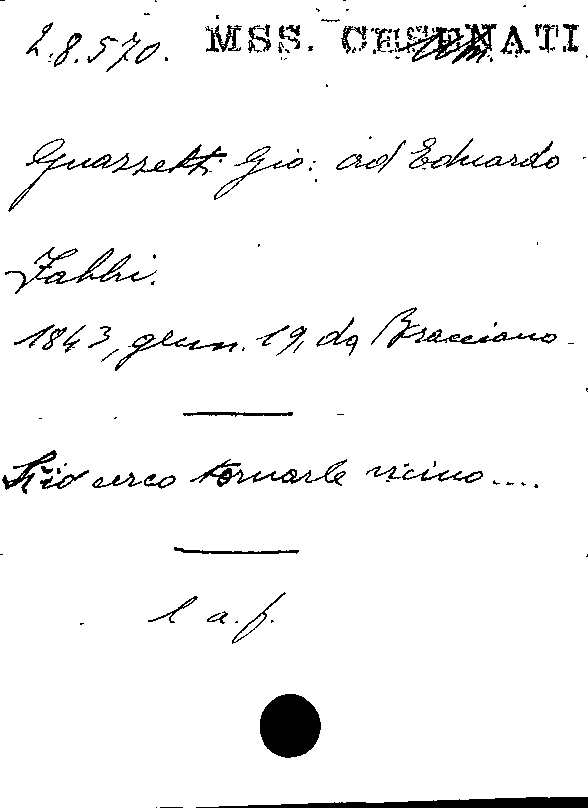 2.8.570. MSS. CESENATI
Guazzetti Gio: ad Eduardo
Fabbri.
1843, genn. 19, da Bracciano
cerco tornarle vicino....
l a.f.